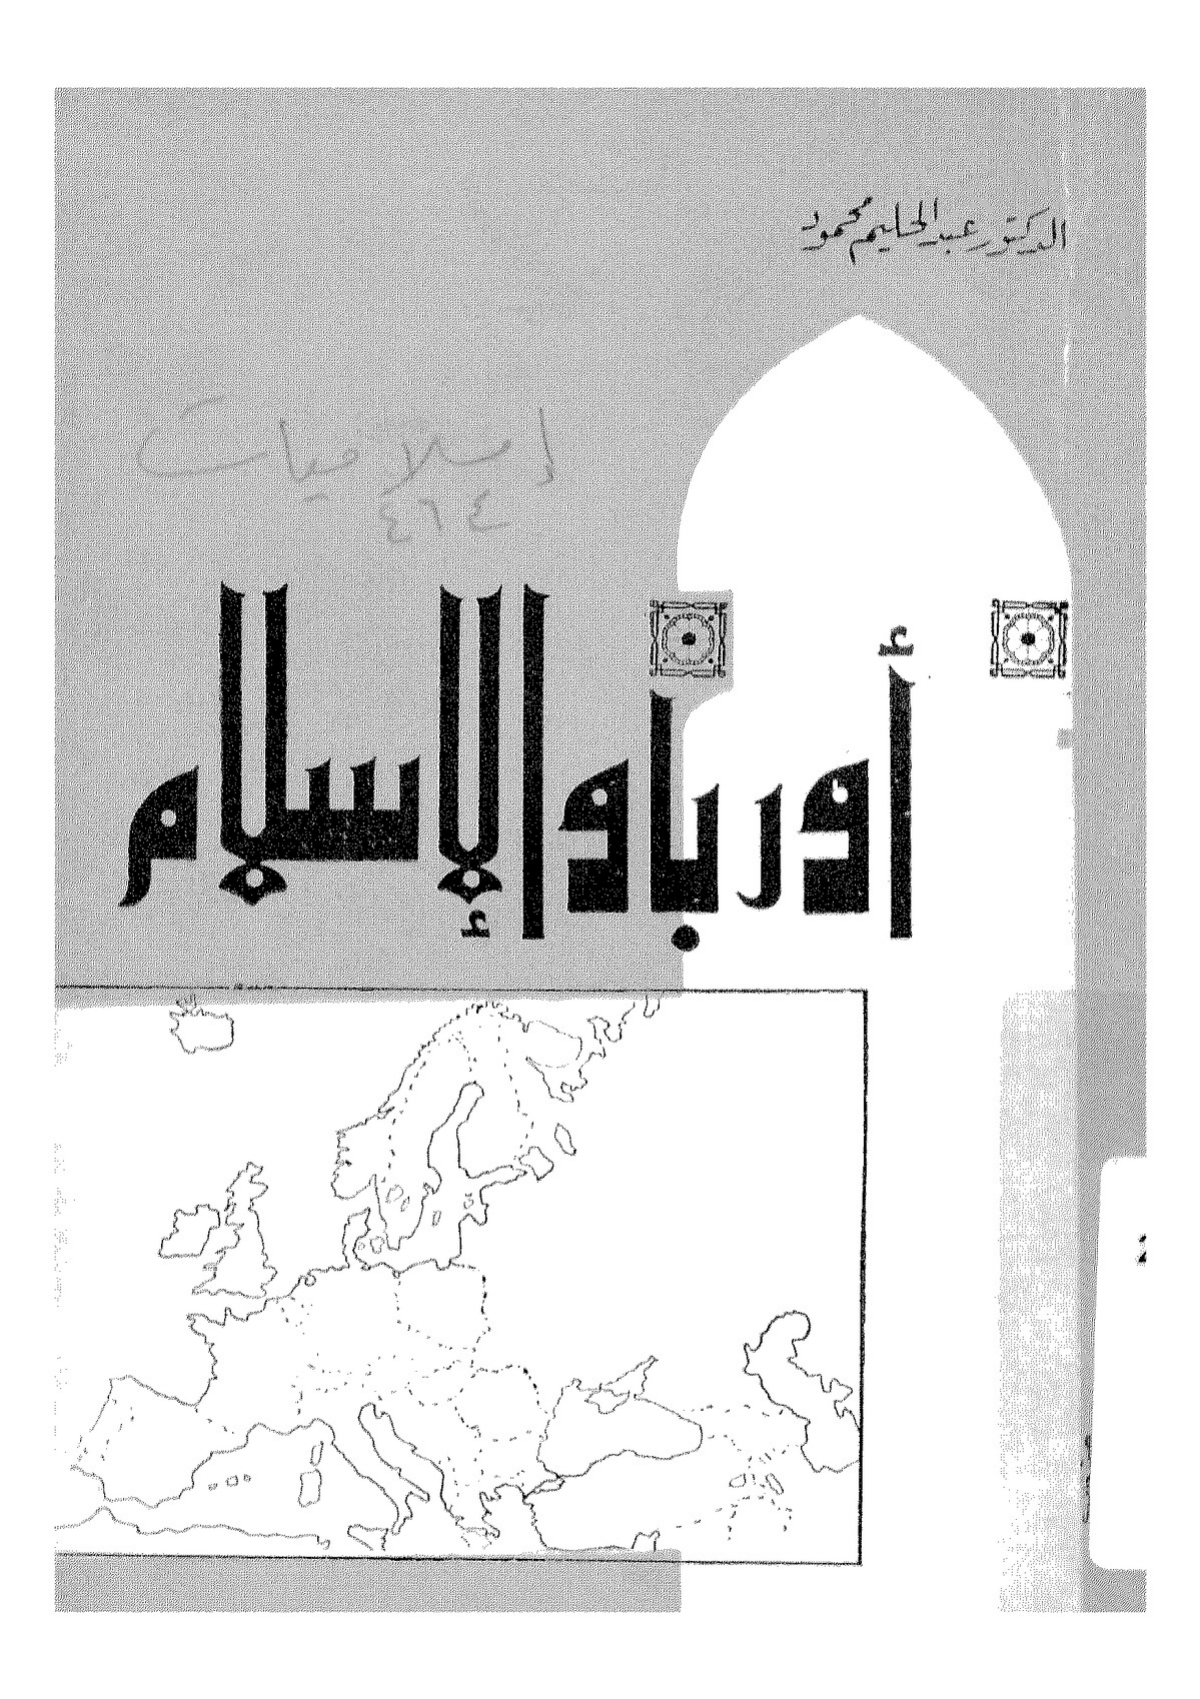 الدكتور عبد الحليم محمود
إسلاميات
٤٦٤
أوربا والإسلام
2